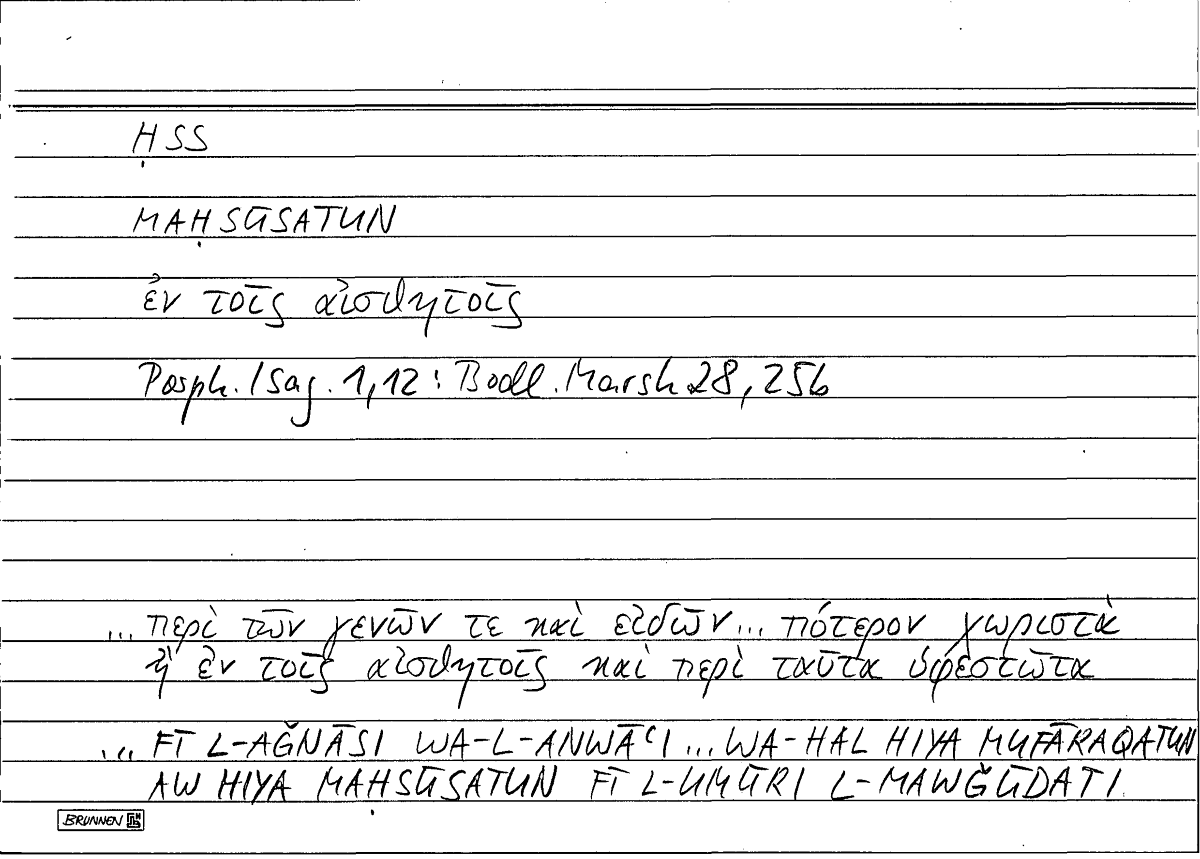 ḤSS
MAḤSŪSATUN
ἐν τοῖς αἰσθητοῖς
Porph. Isag. 1,12 : Bodl. Marsh 28, 25b
... περὶ τῶν γενῶν τε καὶ εἰδῶν ... πότερον χωριστὰ
ἢ ἐν τοῖς αἰσθητοῖς καὶ περὶ ταῦτα ὑφεστῶτα
... FĪ L-AǦNĀSI WA-L-ANWĀʿI ... WA-HAL HIYA MUFĀRAQATUN
AW HIYA MAḤSŪSATUN FĪ L-UMŪRI L-MAWǦŪDATI
BRUNNEN